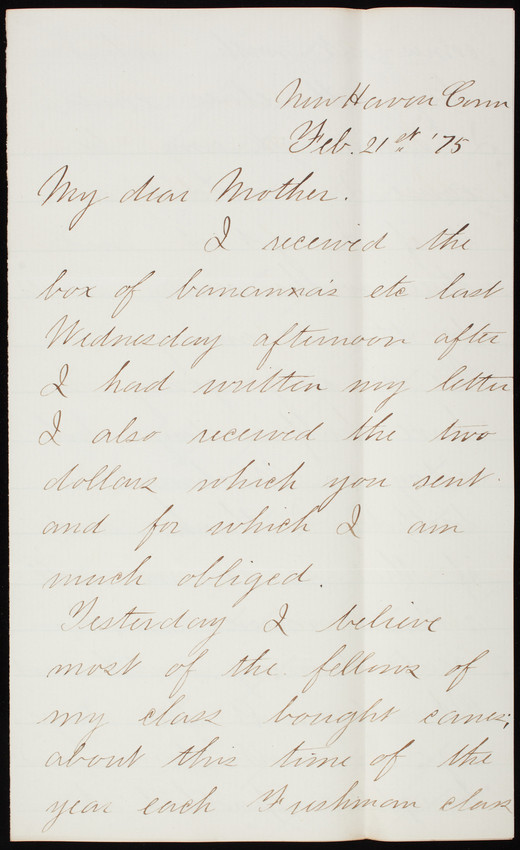 New Haven Conn
Feb. 21st '75
My dear Mother.
I received the
box of bananna's etc last
Wednesday afternoon after
I had written my letter
I also received the two
dollars which you sent.
and for which I am
much obliged.
Yesterday I believe
most of the fellows of
my class bought canes;
about this time of the
year each Freshman class